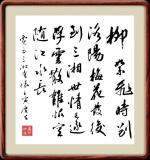 柳絮飛時別
洛陽梅花發後
到三湘世情已逐
浮雲散離恨空
隨江水長